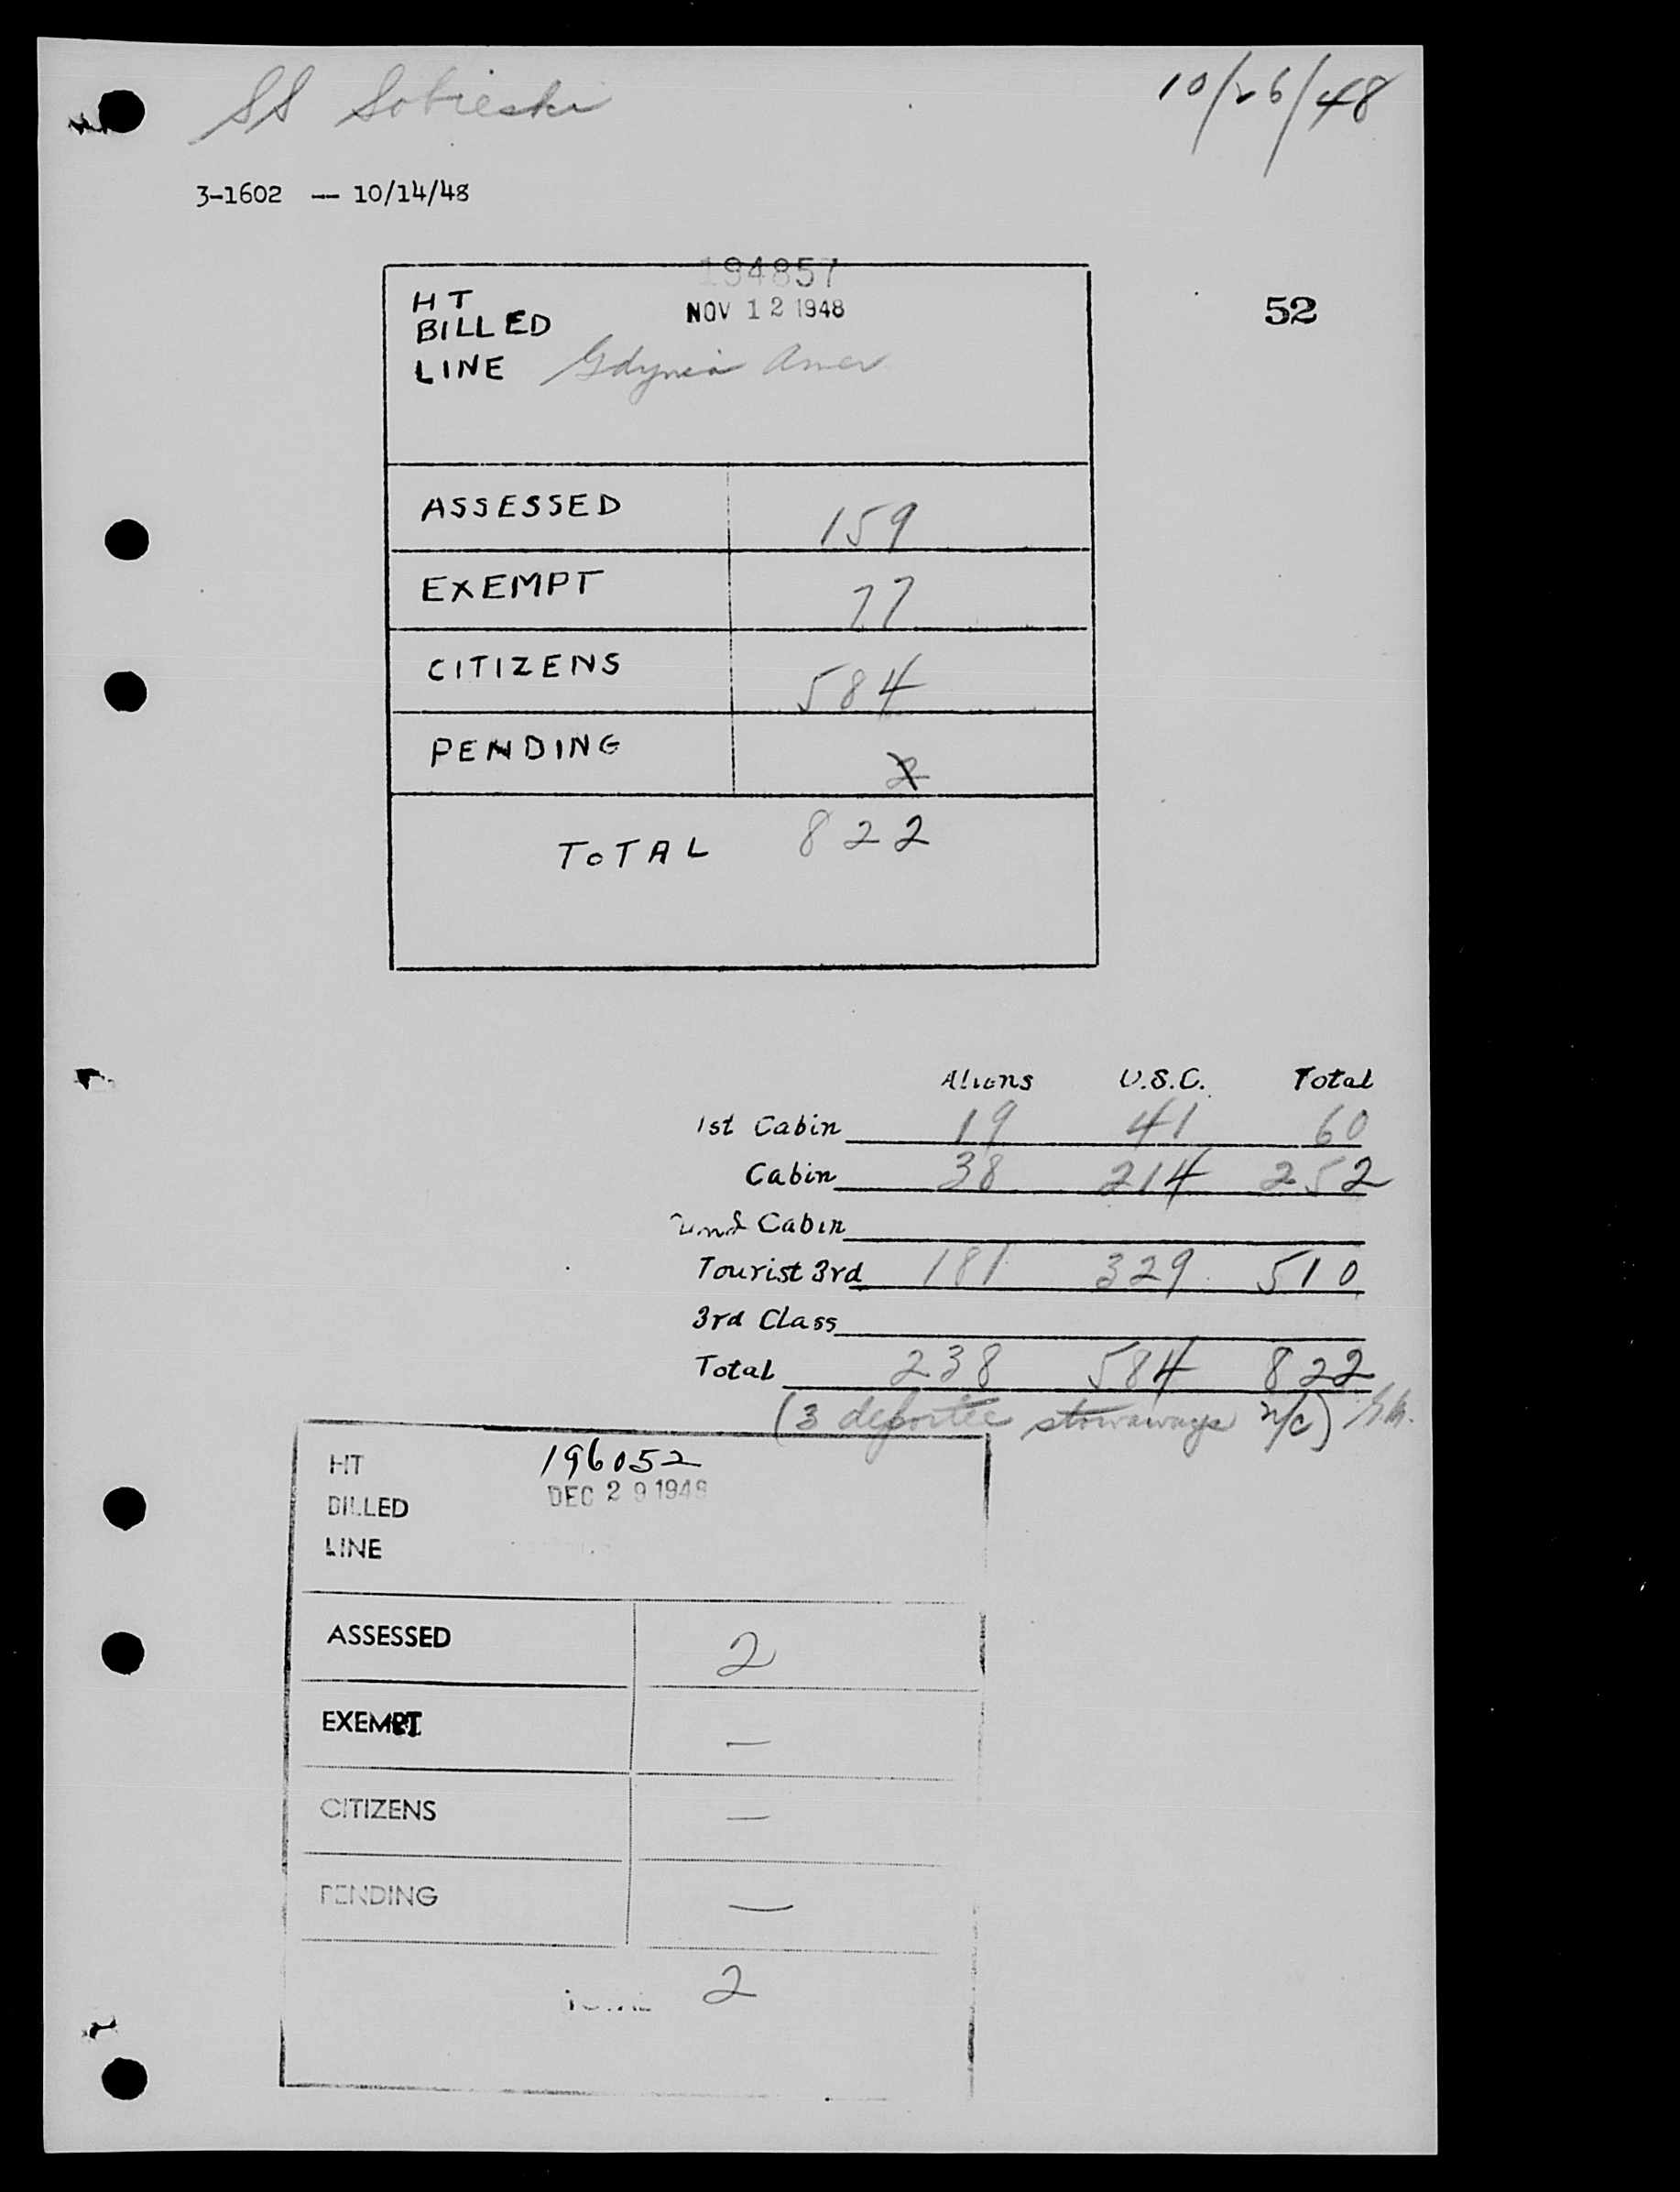 SS Sobieski 10/26/48
3-1602 -- 10/14/48
194857
HT NOV 12 1948
52
BILLED
LINE Gdynia Amer
ASSESSED 159
EXEMPT 77
CITIZENS 584
PENDING 2
TOTAL 822
Aliens U.S.C. Total
1st Cabin 19 41 60
Cabin 38 214 252
2nd Cabin
Tourist 3rd 181 329 510
3rd Class
Total 238 584 822
(3 deportee stowaways n/c)
HT 196052
BILLED DEC 29 1948
LINE
ASSESSED 2
EXEMPT —
CITIZENS —
PENDING —
TOTAL 2